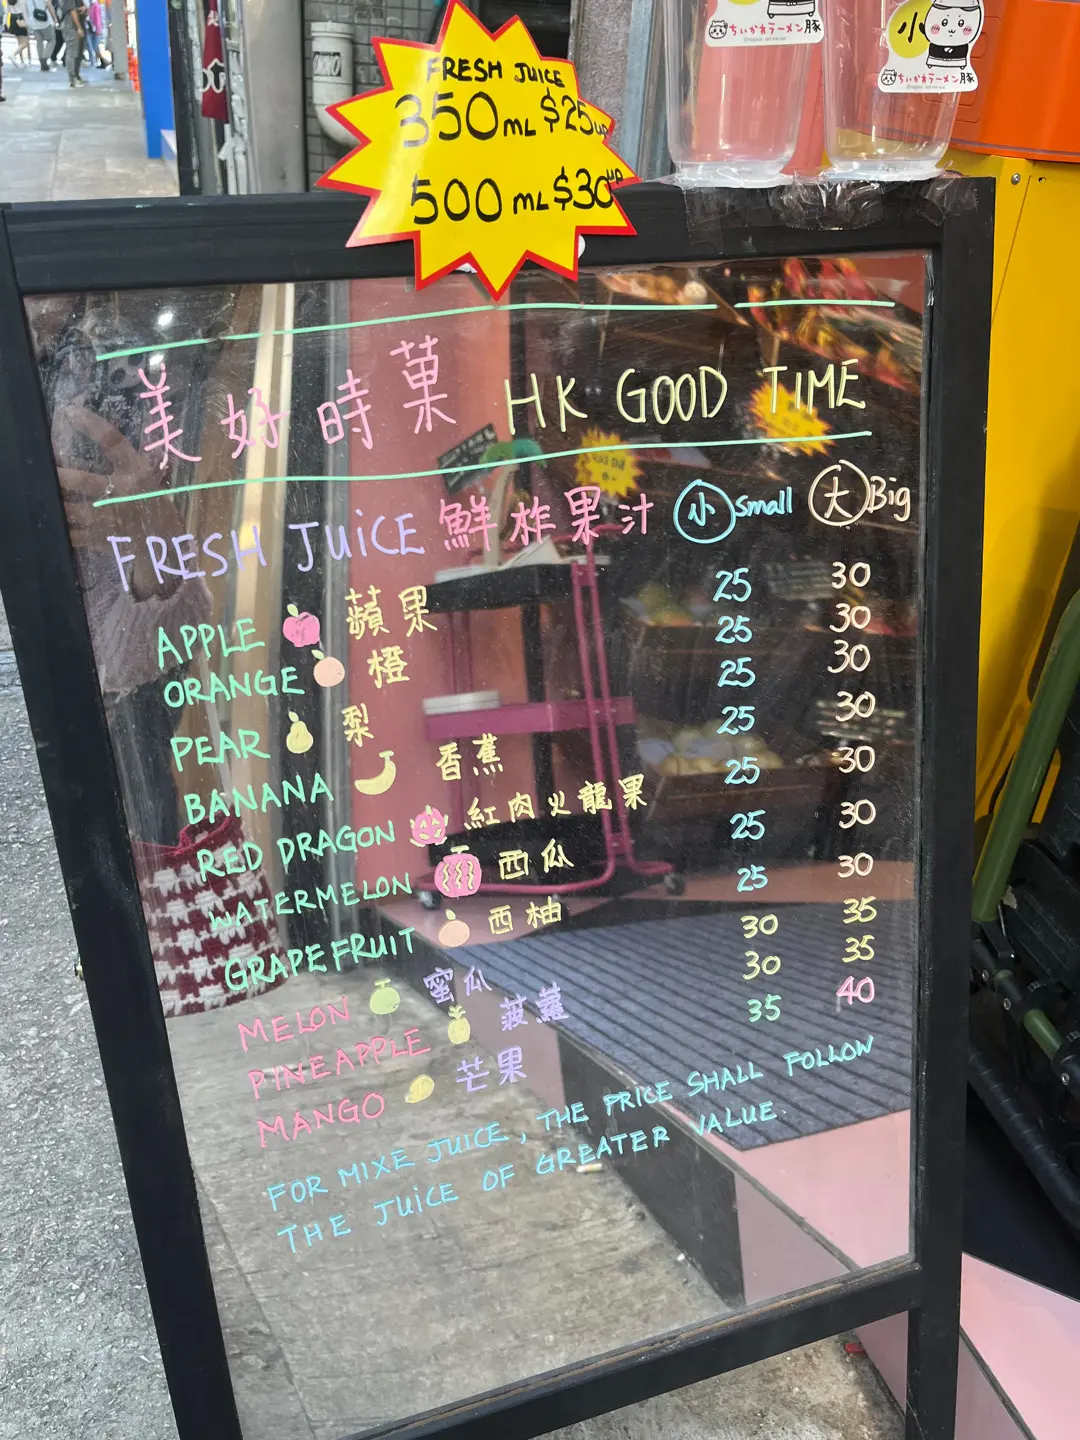 FRESH JUICE
350 mL $25up
500 mL $30up
小
ちいかわラーメン豚
ちいかわラーメン豚
美好時菓 HK GOOD TIME
FRESH JUICE 鮮柞果汁 小 Small 大 Big
APPLE 蘋果 25 30
ORANGE 橙 25 30
PEAR 梨 25 30
BANANA 香蕉 25 30
RED DRAGON 紅肉火龍果 25 30
WATERMELON 西瓜 25 30
GRAPEFRUIT 西柚 25 30
MELON 蜜瓜 30 35
PINEAPPLE 菠蘿 30 35
MANGO 芒果 35 40
FOR MIXE JUICE, THE PRICE SHALL FOLLOW
THE JUICE OF GREATER VALUE.